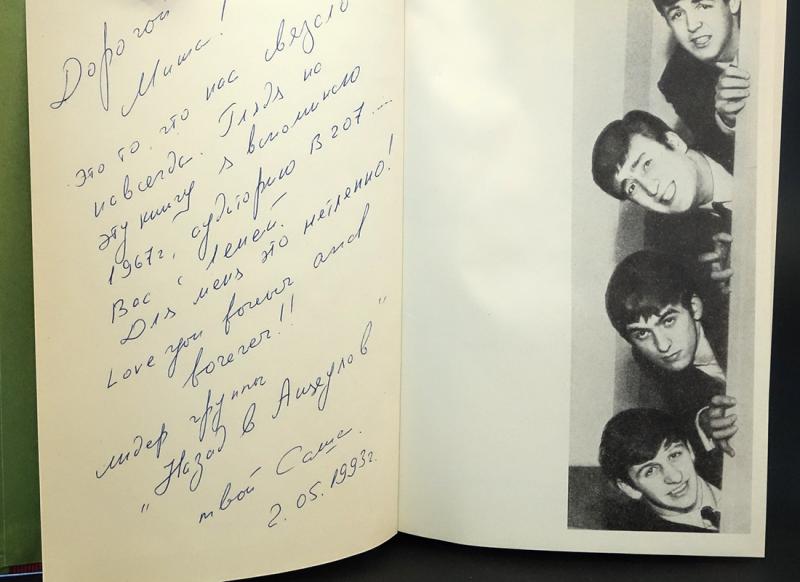 Дорогой
Миша!
это то, что нас связало
навсегда. Глядя на
эту книгу я вспоминаю
1967г, аудиторию В 207....
Вас с Леней.
Для меня это нетленно!
Love you forever and
forever!!
лидер группы
"Назад в Анжеулов"
твой Саша.
2.05.1993г.